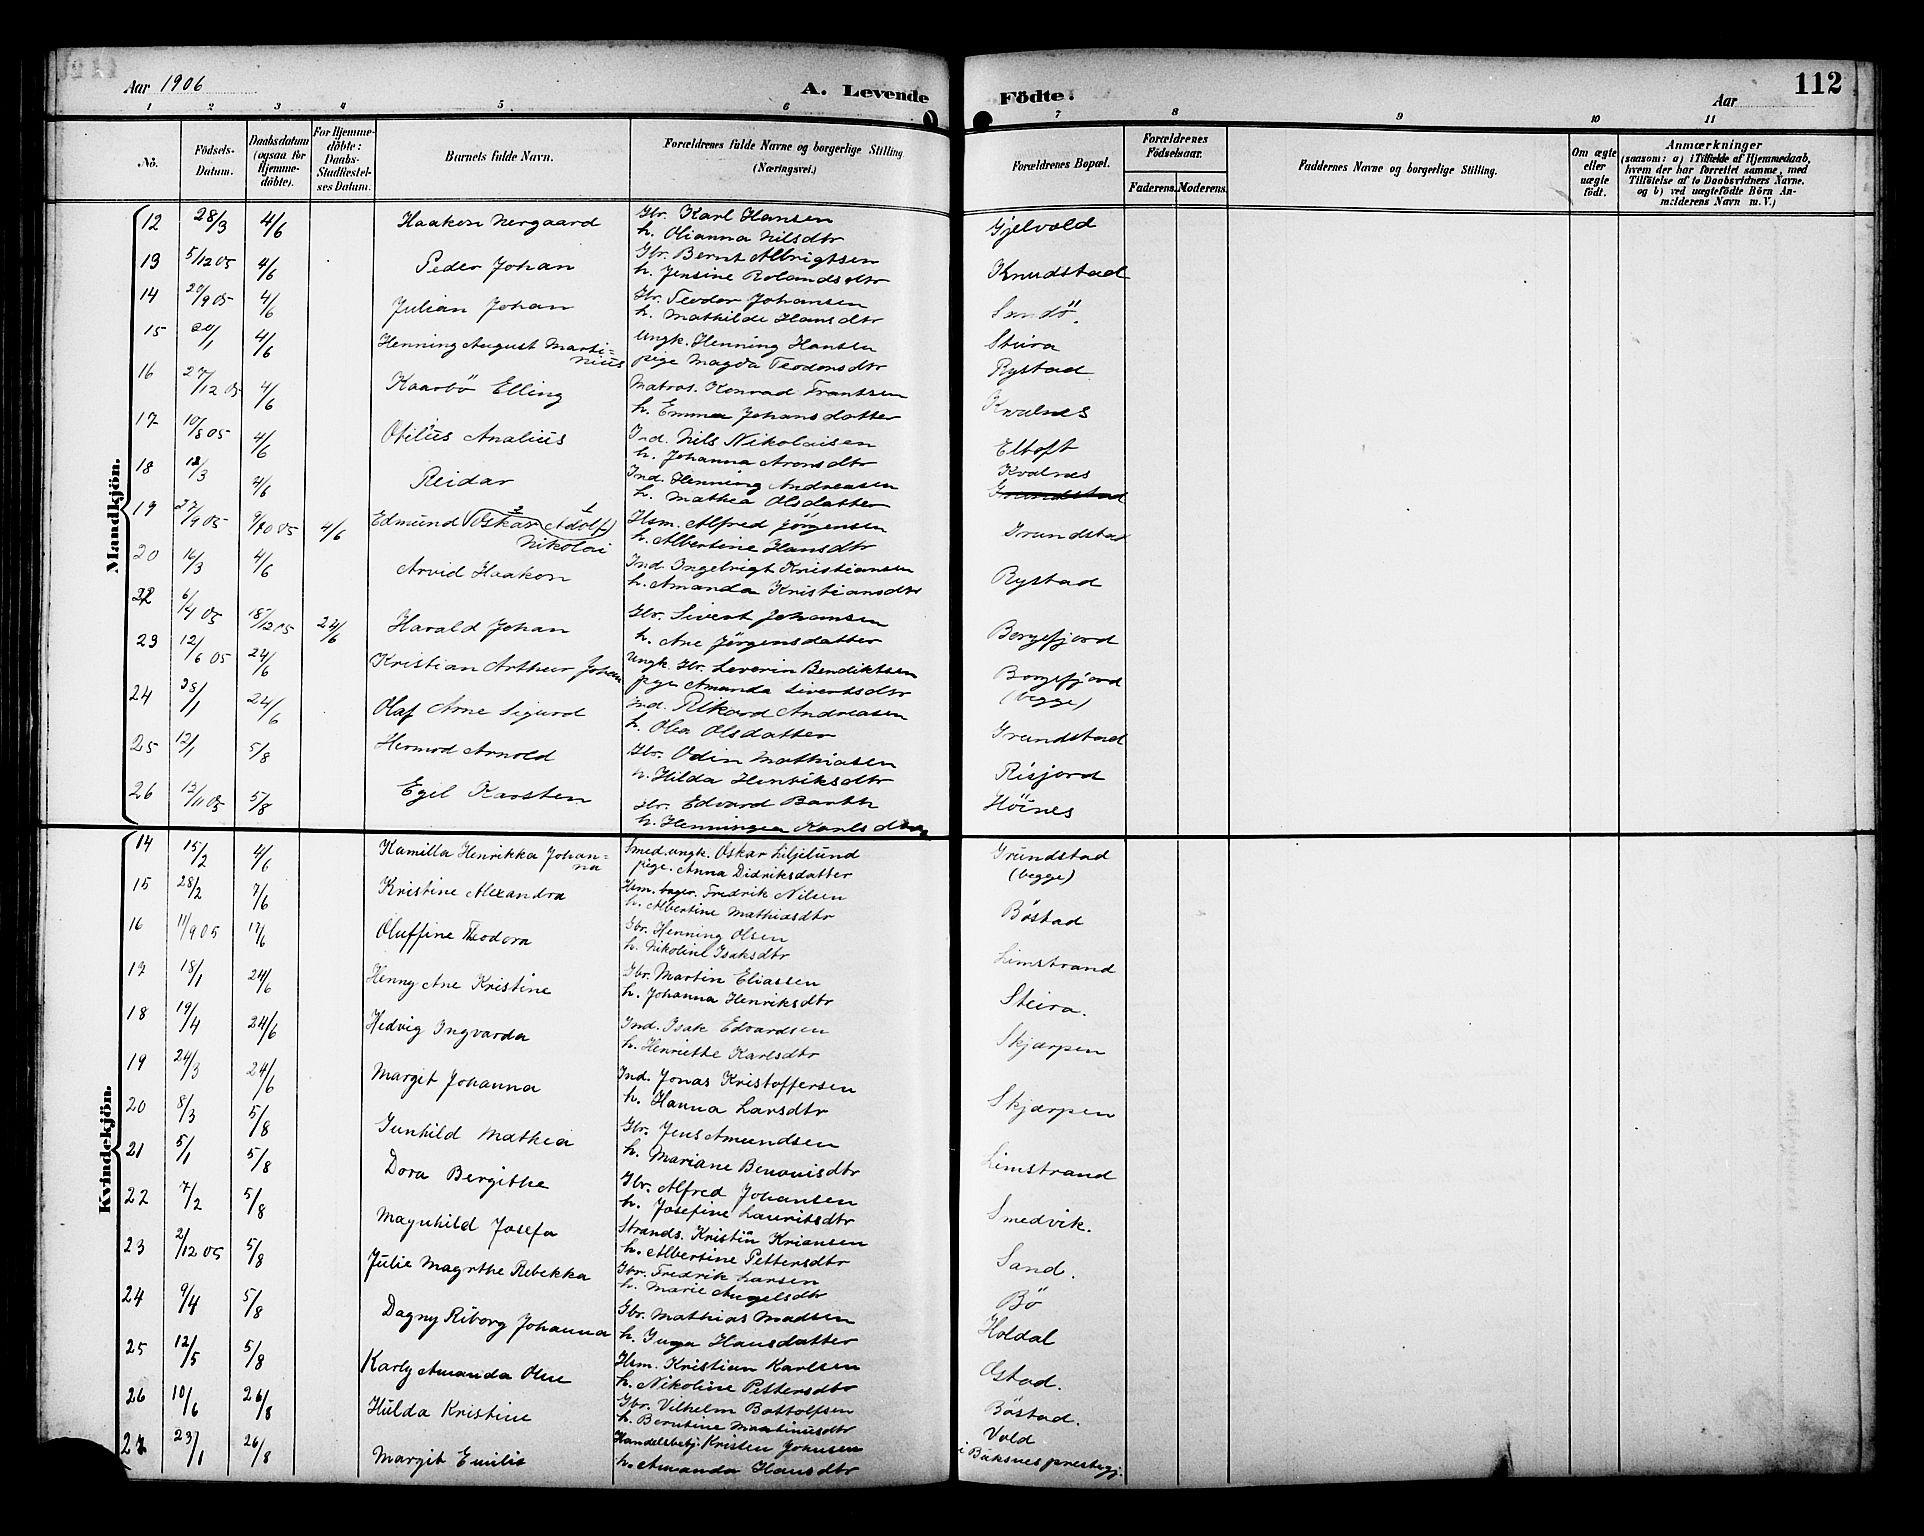 Aar 1906
A. Levende Födte.
Aar
112
1 2 3 4 5 6 7 8 9 10 11
No.
Födsels-Datum.
Daabsdatum (ogsaa for Hjemmedöbte).
For Hjemmedöbte: Daabs-Stadfæstelses Datum.
Barnets fulde Navn.
Forældrenes fulde Navne og borgerlige Stilling (Næringsvei.)
Forældrenes Bopæl.
Forældrenes Födselsaar.
Faderens. Moderens.
Faddernes Navne og borgerlige Stilling.
Om ægte eller uægte födt.
Anmærkninger
(saasom: a) i Tilfælde af Hjemmedaab, hvem der har forrettet samme, med Tilföielse af to Daabsvidners Navne, og b) ved uægtefödte Börn Anmelderens Navn m. V.)
Mandkjön.
12 28/3 4/6 Haakon Nergaard Gbr. Karl Hansen Gjelvold
h. Olianna Nilsdtr
13 5/12 05 4/6 Peder Johan Gbr. Bernt Albrigtsen Knudstad
h. Jensine Rolandsdtr
14 20/9 05 4/6 Julian Johan Gbr. Teodor Johansen Sandö.
h. Mathilde Hansdtr
15 20/1 4/6 Henning August Marti- Ungk. Henning Hansen Steira
nius pige Magda Teodorsdtr Rystad
16 27/12 05 4/6 Kaarbö Elling Matros. Konrad Frantsen Kvalnes
h. Emma Johansdatter
17 10/8 05 4/6 Otilius Analius Ind. Nils Nikolaisen Eltoft
h. Johanna Aronsdtr
18 18/3 4/6 Reidar Ind. Henning Andreasen Kvalnes
h. Mathea Olsdatter Grundstad
19 27/9 05 9/10 05 4/6 Edmund Oskar Adolf Hsm. Alfred Jörgensen Grundstad
Nikolai h. Albertine Hansdtr
20 16/3 4/6 Arvid Haakon Ind Ingebrigt Kristiansen Rystad
h. Amanda Kristiansdtr
22 6/4 05 18/12 05 24/6 Harald Johan Gbr. Sivert Johansen Borgefjord
h. Ane Jörgensdatter
23 12/6 05 24/6 Kristian Arthur Johan Ungk. Gbr. Severin Bendiktsen Borgefjord
pige Amanda Sivertsdtr (begge)
24 25/1 24/6 Olaf Arne Sigurd Ind. Rikard Andreasen Grundstad
h. Olea Olsdatter
25 12/1 5/8 Hermod Arnold Gbr. Odin Mathiasen Risjord
h. Hilda Henriksdtr
26 12/11 05 5/8 Egil Karsten Gbr. Edvard Barth Höines
h. Henningea Karlsdtr
Kvindekjön.
14 15/2 4/6 Kamilla Henrikka Johan- Smed. ungk. Oskar Liljelund Grundstad
na pige. Anna Didriksdatter (begge)
15 28/2 7/6 Kristine Alexandra Hsm. bager. Fredrik Nilsen Böstad
h. Albertine Mathiasdtr
16 11/9 05 17/6 Oluffine Theodora Gbr. Henning Olsen Limstrand
h. Nikoline Isaksdtr
17 18/1 24/6 Henny Ane Kristine Gbr. Martin Eliassen Steira.
h. Johanna Henriksdtr
18 19/4 24/6 Hedvig Ingvarda Ind. Isak Edvardsen Skjærpen
h. Henriette Karlsdtr
19 24/3 24/6 Margit Johanna Ind. Jonas Kristoffersen Skjærpen
h. Hanna Larsdtr
20 8/3 5/8 Gunhild Mathea Gbr. Jens Amundsen Limstrand
h. Mariane Benonisdtr
21 5/1 5/8 Dora Bergithe Gbr. Alfred Johansen Smedvik.
h. Josefine Lauritsdtr
22 7/2 5/8 Magnhild Josefa Strands. Kristin Kriansen Sand.
h. Albertine Pettersdtr
23 2/12 05 5/8 Julie Magrthe Rebekka Gbr. Fredrik Larsen Bö
h. Marie Angelsdtr
24 9/4 5/8 Dagny Riborg Johanna Gbr. Mathias Madsen Holdal
h. Inga Hansdatter
25 12/5 5/8 Karly Amanda Oline Hsm. Kristian Karlsen Östad.
h. Nikoline Pettersdtr
26 10/6 26/8 Hulda Kristine Gbr. Vilhelm Bottolfsen Böstad.
h. Berntine Martinusdtr
27 23/1 26/8 Margit Emilie Handelsbetj. Kristen Johnsen Vold
h. Amanda Hansdtr i Buksnes prestegj.